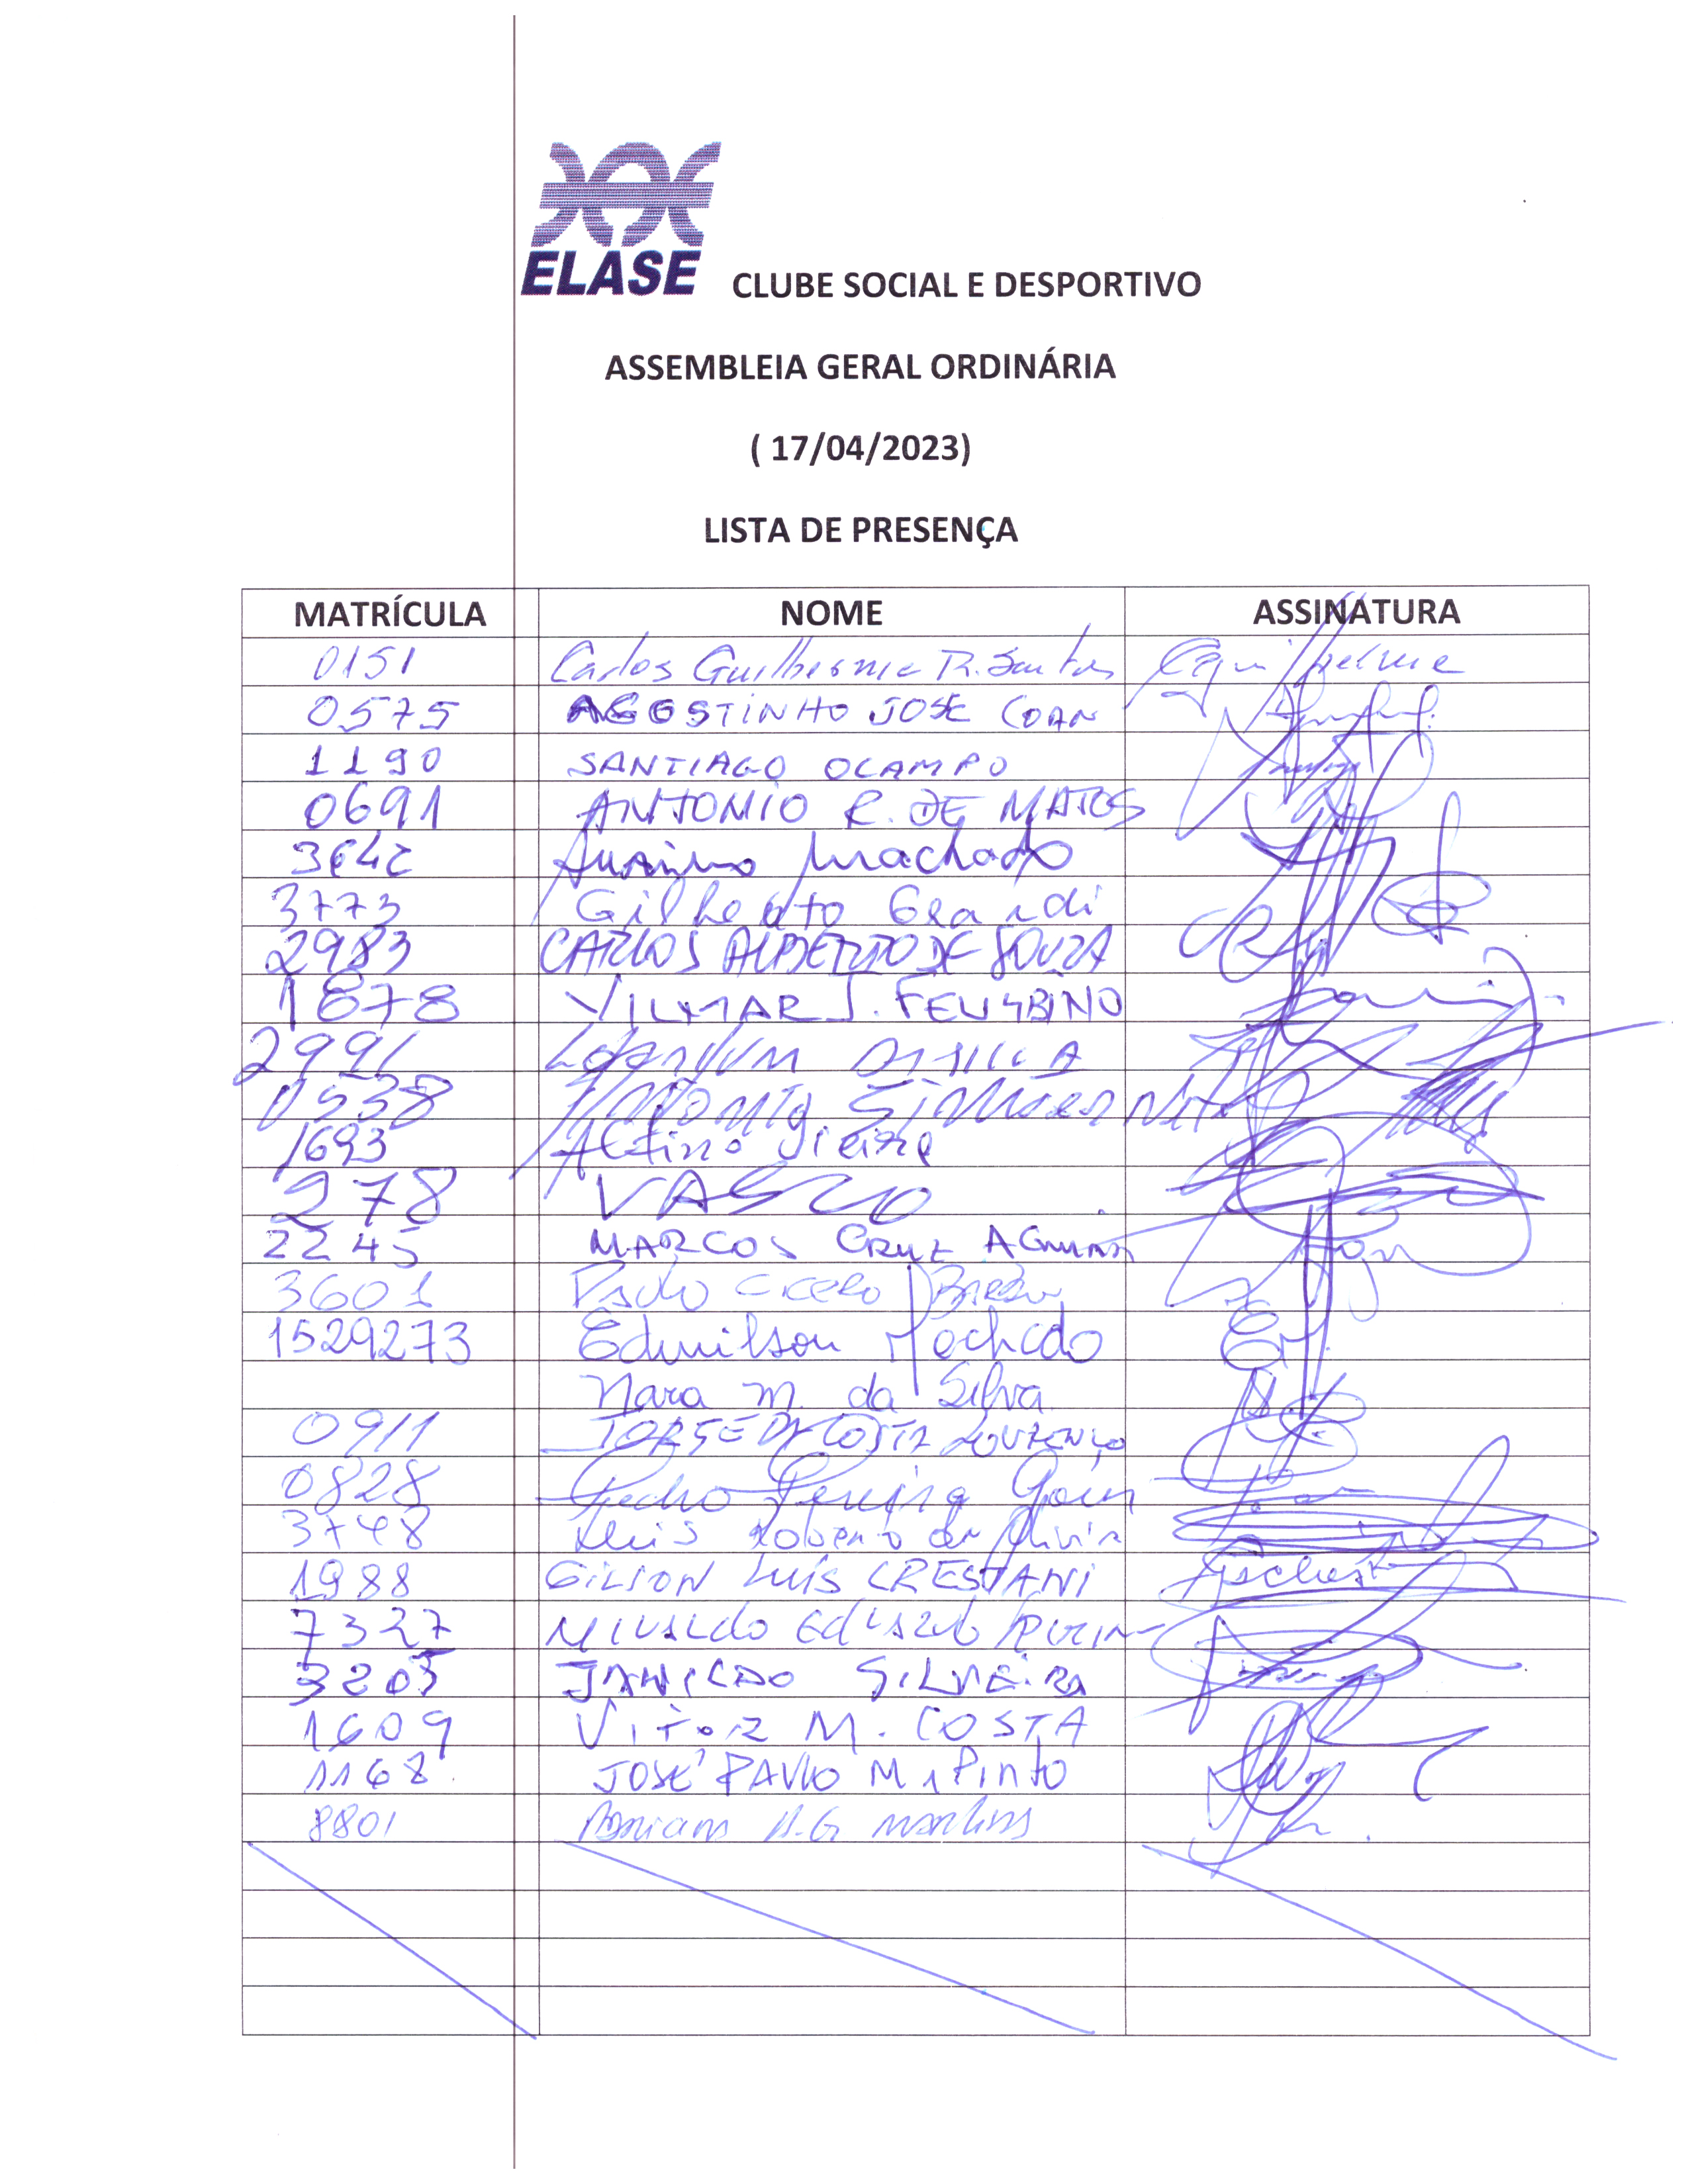 ELASE CLUBE SOCIAL E DESPORTIVO
ASSEMBLEIA GERAL ORDINÁRIA
( 17/04/2023)
LISTA DE PRESENÇA
MATRÍCULA NOME ASSINATURA
0151 Carlos Guilherme R. Santos Cguilherme
0575 AGOSTINHO JOSE COAN
1190 SANTIAGO OCAMPO
0691 ANTONIO R. DE MATOS
3642 Machado
3773 Gilberto Grandi
2983 CARLOS ALBERTO DE SOUZA
1878 VILMAR J.
2991
0538 Antonio Neto
1693 Altino Vieira
278 VASCO
2245 MARCOS CRUZ AGUIAR
3601 Paulo Cicero
1529273 Edmilson Machado
Nara M. da Silva
0911 JORGE DA COSTA LOURENÇO
0828 Pedro Pereira
3748 Luis Roberto de
1988 GILSON LUÍS CRESTANI
7327 Eduardo
3203 JANILDO SILVEIRA
1609 VITOR M. COSTA
1168 JOSÉ PAULO M. PINTO
8801 Martins